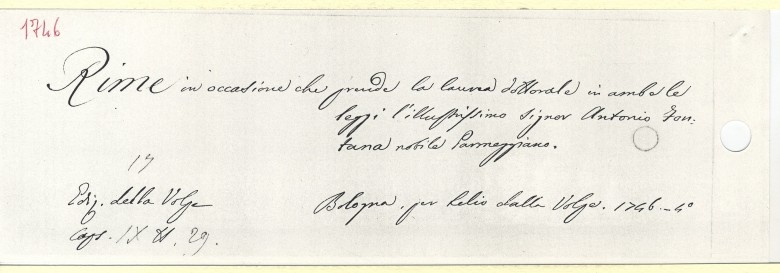 1746
Rime in occasione che prende la laurea dottorale in ambe le
leggi l'illustrissimo signor Antonio Fon=
tana nobile Parmeggiano.
17
Ediz. della Volpe
Bologna, per Lelio dalla Volpe. 1746. 4º
Caps. IX 29.